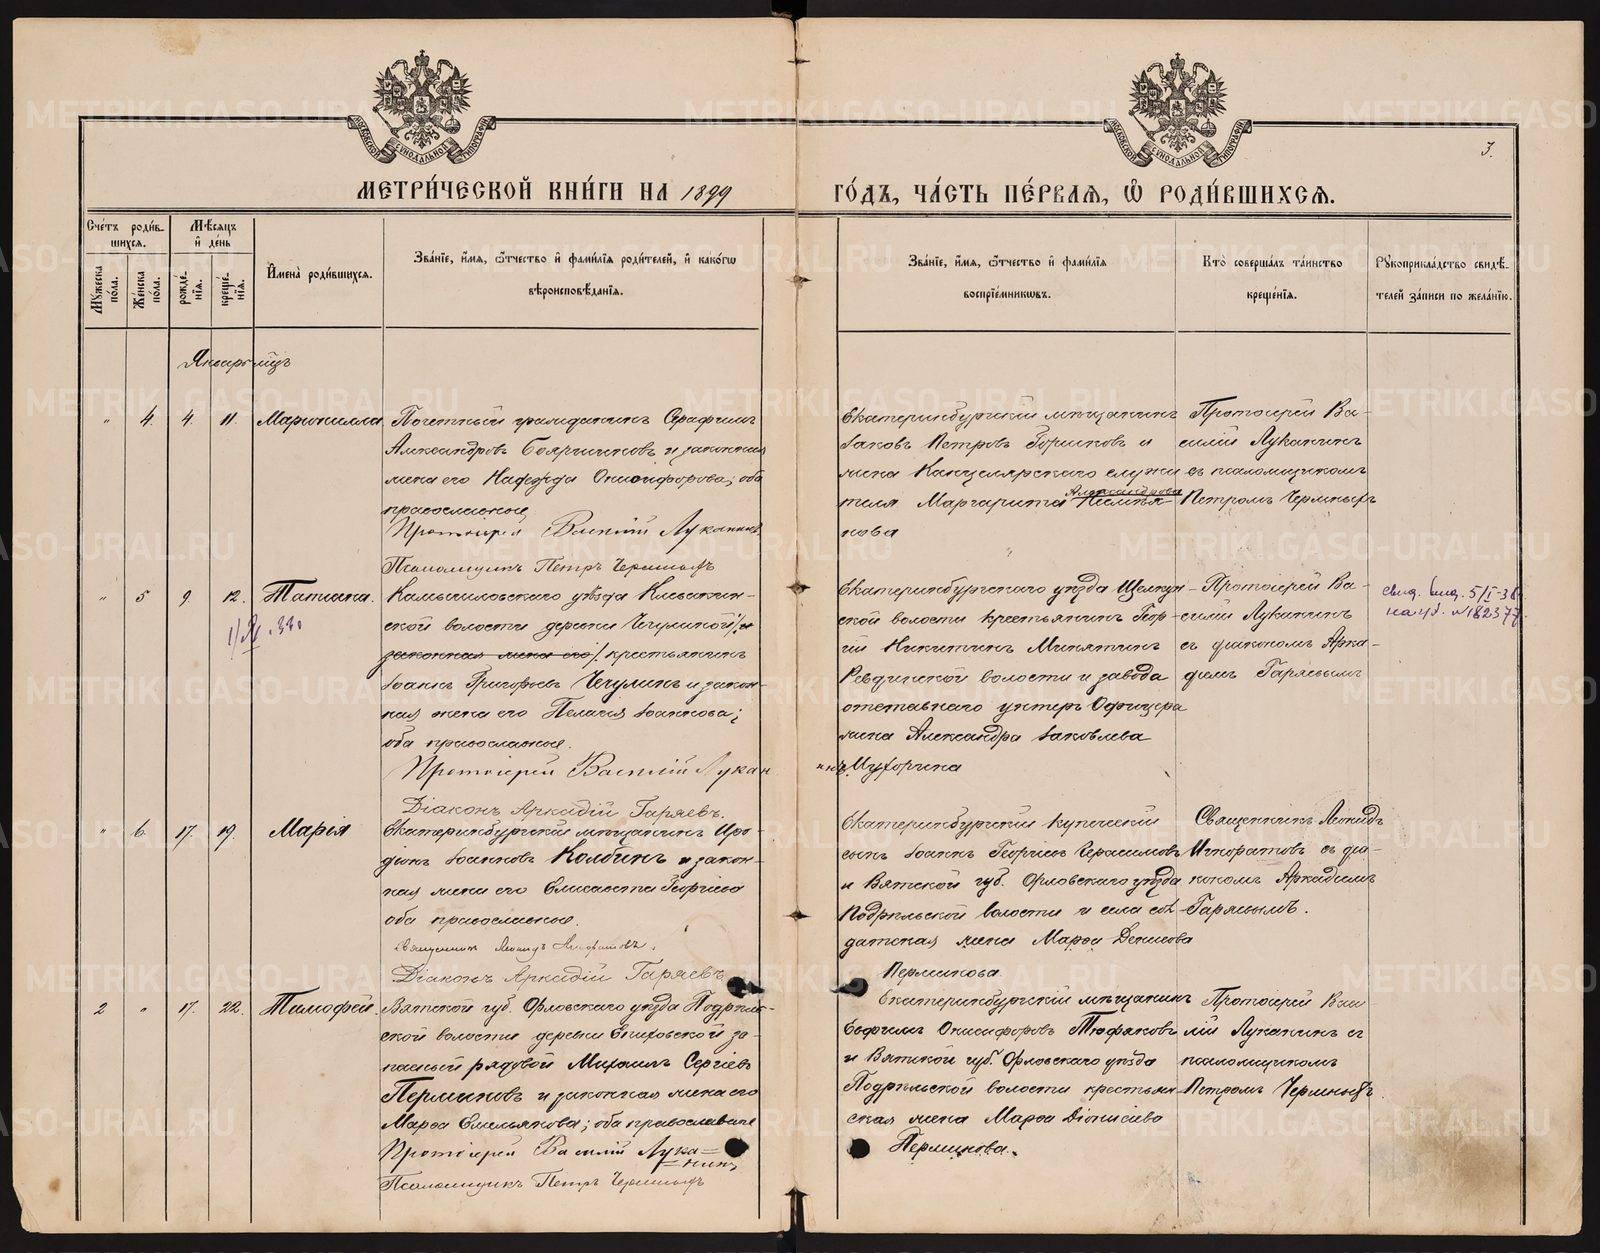 МЕТРИ́ЧЕСКОЙ КНИ́ГИ НА 1899
ГО́ДЪ, ЧА́СТЬ ПЕ́РВАѦ, Ѡ҆ РОДИ́ВШИХСѦ.
3.
Сче́тъ роди́в-
шихсѧ.
Мꙋ́жеска по́ла.
Же́нска по́ла.
Мѣ́сяцъ
и҆ де́нь
рожде́-
нїѧ.
креще́-
нїѧ.
И҆мена̀ роди́вшихсѧ.
Зва́нїе, и҆́мѧ, ѻ҆́тчество и҆ фами́лїѧ роди́телей, и҆ како́гѡ
вѣроисповѣ́данїѧ.
Зва́нїе, и҆́мѧ, ѻ҆́тчество и҆ фами́лїѧ
воспрїе́мникѡвъ.
Кто̀ соверша́лъ та́инство
креще́нїѧ.
Рꙋкоприкла́дство свидѣ́-
телей за́писи по жела́нїю.
Январь мцъ
" 4. 4. 11. Марионилла
Почетный гражданинъ Серафимъ
Александровъ Бояршиновъ и законная
жена его Надежда Онисифорова, оба
православные
Протоіерей Василій Луканинъ.
Псаломщикъ Петръ Черемныхъ
Екатеринбургскій мѣщанинъ
Іаковъ Петровъ Горшковъ и
жена Канцелярскаго служи
теля Маргарита Александрова
нова
Протоіерей Ва-
силій Луканинъ
съ псаломщикомъ
Петромъ Черемныхъ
" 5 9. 12. Татиана.
Камышловскаго уѣзда Клевакин-
ской волости деревни Чечулиной /:и
законная жена его:/ крестьянинъ
Іоаннъ Григорьевъ Чечулинъ и закон-
ная жена его Пелагія Іоаннова;
оба православные.
Протоіерей Василій Лукан
инъ
Діаконъ Аркадій Гаряевъ.
Екатеринбургскаго уѣзда Щелкун-
ской волости крестьянинъ Геор-
гій Никитинъ Микятинъ
Ревдинской волости и завода
отставнаго унтеръ Офицера
жена Александра Іаковлева
Мухорина
Протоіерей Ва-
силій Луканинъ
съ діакономъ Арка-
діемъ Гаряевымъ
свид. выд. 5/I-38
№182377.
" 6. 17. 19. Марія
Екатеринбургскій мѣщанинъ Иро-
діонъ Іоанновъ Колбинъ и закон-
ная жена его Елисавета Георгіева
оба православные.
Священникъ Леонидъ Игноратовъ.
Діаконъ Аркадій Гаряевъ
Екатеринбургскій купеческій
сынъ Іоаннъ Георгіевъ Герасимовъ
и Вятской губ. Орловскаго уѣзда
Подрѣльской волости и села сол-
датская жена Марѳа Денисова
Перминова.
Священникъ Леонидъ
Игноратовъ съ діа-
кономъ Аркадіемъ
Гаряевымъ.
2 " 17. 22. Тимофей.
Вятской губ. Орловскаго уѣзда Подрѣль-
ской волости деревни Елиховской за-
пасный рядовой Михаилъ Сергіевъ
Перминовъ и законная жена его
Марѳа Емельянова; оба православные
Протоіерей Василій Лука=
нинъ
Псаломщикъ Петръ Черемныхъ
Екатеринбургскій мѣщанинъ
Евфимъ Онисифоровъ Тюфяковъ
и Вятской губ. Орловскаго уѣзда
Подрѣльской волости крестьян
ская жена Марѳа Діонисіева
Перминова.
Протоіерей Васи
лій Луканинъ съ
псаломщикомъ
Петромъ Черемныхъ